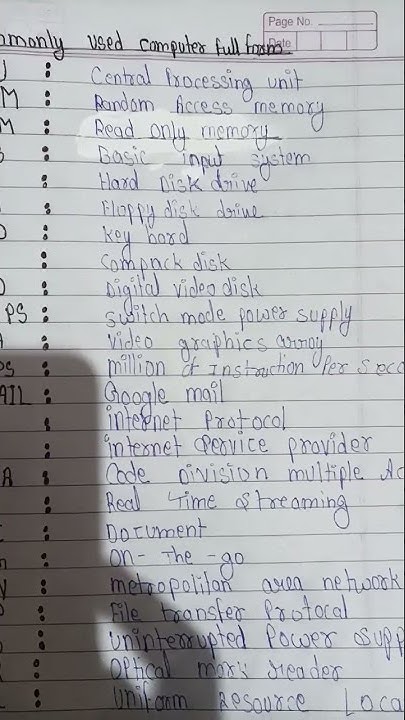 Page No.
Date
mmonly used computer full forms
U : Central Processing unit
M : Random Access memory
M : Read only memory
S : Basic input system
: Hard Disk drive
: Floppy disk drive
D : Key bord
: Compack disk
D : Digital video disk
PS : Switch mode power supply
A : Video graphics array
PS : million of Instruction Per Seco
AIL : Google mail
: internet Protocol
: internet service provider
A : Code Division multiple Ac
: Real time streaming
: Document
: on-The-go
: metropolitan area network
: File transfer Protocal
: uninterrupted Power supp
: optical mark reader
: uniform Resource Loca